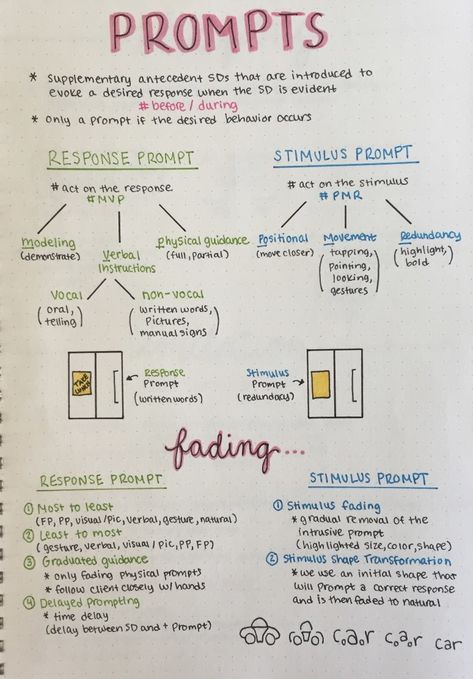 PROMPTS
* Supplementary antecedent SDs that are introduced to
evoke a desired response when the SD is evident
# before / during
* Only a prompt if the desired behavior occurs
RESPONSE PROMPT
# act on the response
# MVP
Modeling
(demonstrate)
Verbal
Instructions
Physical guidance
(full, partial)
Vocal
(oral,
telling)
non-vocal
(written words,
Pictures,
manual signs)
STIMULUS PROMPT
# act on the stimulus
# PMR
Positional
(move closer)
Movement
(tapping,
pointing,
looking,
gestures)
Redundancy
(highlight,
bold)
TAKE
Response
Prompt
(written words)
Stimulus
Prompt
(redundacy)
fading...
RESPONSE PROMPT
① Most to least
(FP, PP, visual/pic, verbal, gesture, natural)
② Least to most
(gesture, verbal, visual/pic, PP, FP)
③ Graduated guidance
* only fading physical prompts
* follow client closely w/ hands
④ Delayed Prompting
* time delay
(delay between SD and + prompt)
STIMULUS PROMPT
① Stimulus fading
* gradual removal of the
intrusive prompt
(highlighted size, color, shape)
② Stimulus Shape Transformation
* we use an initial shape that
will prompt a correct response
and is then faded to natural
car car car